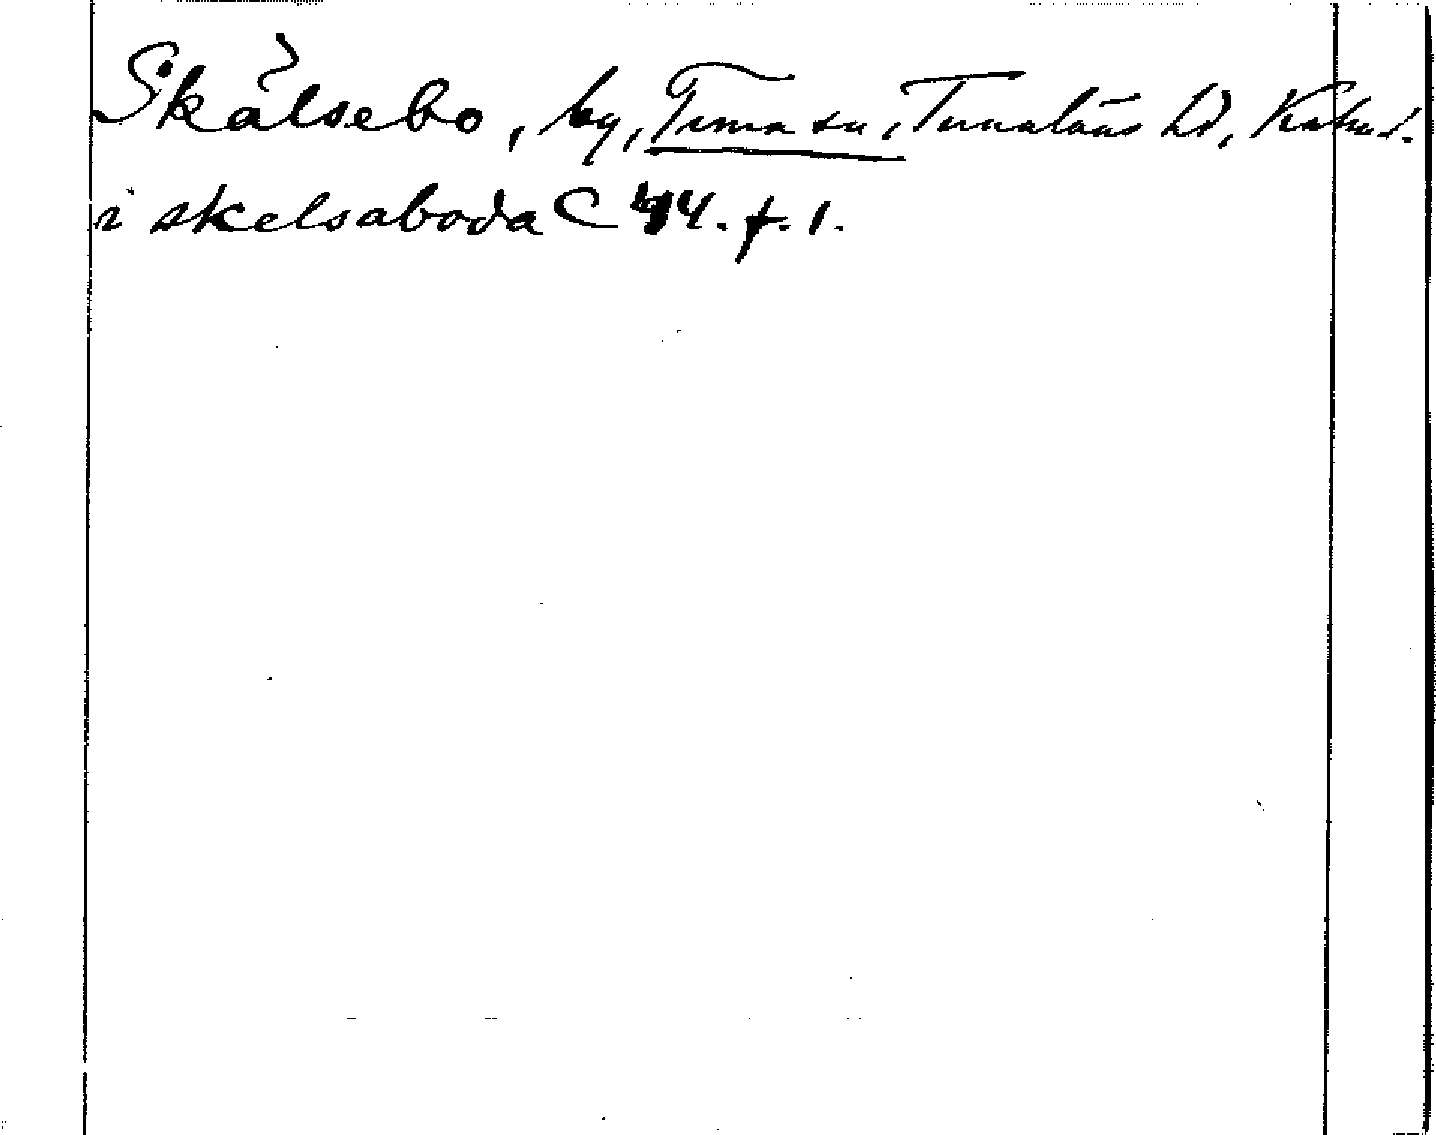 Skälsebo, by, Tuna sn, Tunaläns hd, Kalm.
i skelsaboda C 44. f. 1.